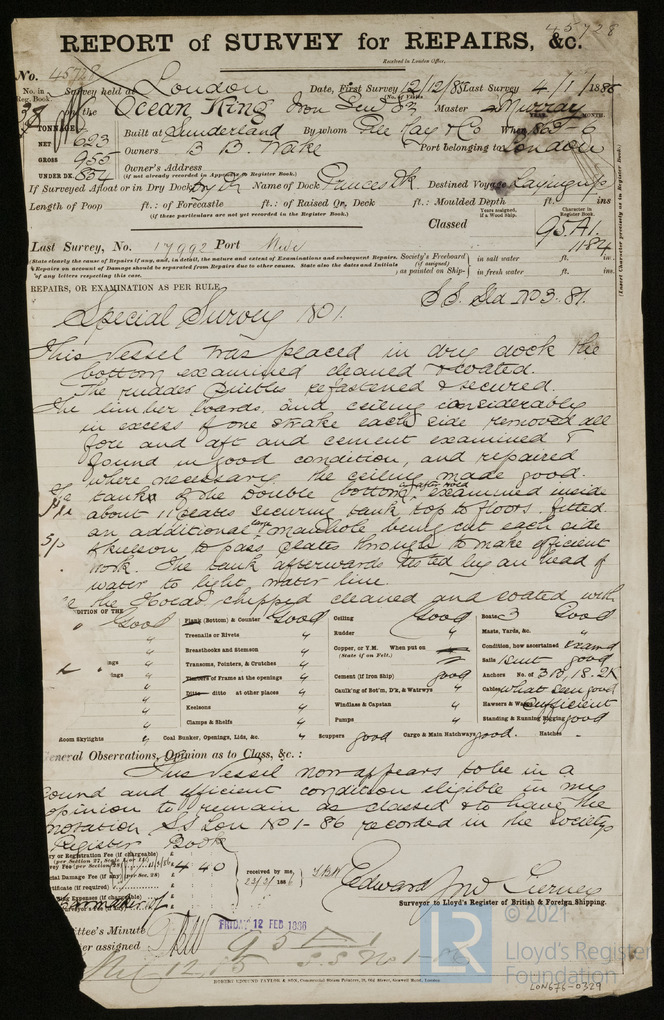 45728
REPORT of SURVEY for REPAIRS, &c.
Received in London Office,
No. 45728
No. in Reg. Book. Survey held at London Date, First Survey 12/12/85 Last Survey 4/1/1886
on the Ocean King Iron Master Murray
TONNAGE
NET 623
GROSS 955
UNDER DK. 854
Built at Sunderland By whom When
YEAR. MONTH.
Owners B. Wake Port belonging to London
Owner's Address
(if not already recorded in Appendix to Register Book.)
If Surveyed Afloat or in Dry Dock Dry Dk Name of Dock Princes Dk Destined Voyage Laying up
Length of Poop ft.: of Forecastle ft.: of Raised Qr. Deck ft.: Moulded Depth ft. ins
(if these particulars are not yet recorded in the Register Book.)
Years assigned, if a Wood Ship.
Character in Register Book.
Classed 95A1.
11.84
Last Survey, No. 17992 Port
(State clearly the cause of Repairs if any, and, in detail, the nature and extent of Examinations and subsequent Repairs.
Repairs on account of Damage should be separated from Repairs due to other causes. State also the dates and Initials
of any letters respecting this case.
Society's Freeboard (if assigned) as painted on Ship- in salt water ft. in.
in fresh water ft. in.
(Insert Character precisely as in Register Book.)
REPAIRS, OR EXAMINATION AS PER RULE, S.S. Sld No 3. 81.
Special Survey No 1.
This Vessel was placed in dry dock the
bottom examined cleaned & coated.
The rudder pintles refastened & secured.
The limber boards, and ceiling considerably
in excess of one strake each side removed all
fore and aft and cement examined &
found in good condition, and repaired
where necessary. the ceiling made good.
tanks of the double bottom in after hold examined inside
about 11 plates securing tank top to floors fitted
an additional manhole being cut each side
keelson to pass plates through to make efficient
work. The tank afterwards tested by an head of
water to light water line.
the Holds chipped cleaned and coated with
CONDITION OF THE
Good
Plank (Bottom) & Counter Good
Treenails or Rivets "
Breasthooks and Stemson "
Transoms, Pointers, & Crutches "
Timbers of Frame at the openings "
Ditto ditto at other places "
Keelsons "
Clamps & Shelfs "
Ceiling Good
Rudder "
Copper, or Y.M. When put on
(State if on Felt.)
Cement (if Iron Ship) good
Caulk'ng of Bot'm, D'k, & Watrwys "
Windlass & Capstan "
Pumps "
Boats 3 Good
Masts, Yards, &c. "
Condition, how ascertained Examd
Sails good
Anchors No. of 3B, 1S. 2K
Cables what seen good
Hawsers & Warps sufficient
Standing & Running Rigging good
Room Skylights " Coal Bunker, Openings, Lids, &c. " Scuppers good Cargo & Main Hatchways good. Hatches "
General Observations, Opinion as to Class, &c. :
This Vessel now appears to be in a
sound and efficient condition eligible in my
opinion to remain as classed & to have the
notation SS Lon No 1-86 recorded in the Societys
Register Book
Entry or Registration Fee (if chargeable)
Survey Fee (per Section 28) £ 4.4.0
Special Damage Fee (if any) (per Sec. 28)
Certificate (if required)
Travelling Expenses (if chargeable)
received by me,
188
Edward Jno Tierney
Surveyor to Lloyd's Register of British & Foreign Shipping.
Committee's Minute FRIDAY 12 FEB 1886
Character assigned 95 A 1
S.S. No 1-86
© 2021
LR Lloyd's Register Foundation
ROBERT EDMUND TAYLOR & SON, Commercial Steam Printers, 19, Old Street, Goswell Road, London.
LON676-0329